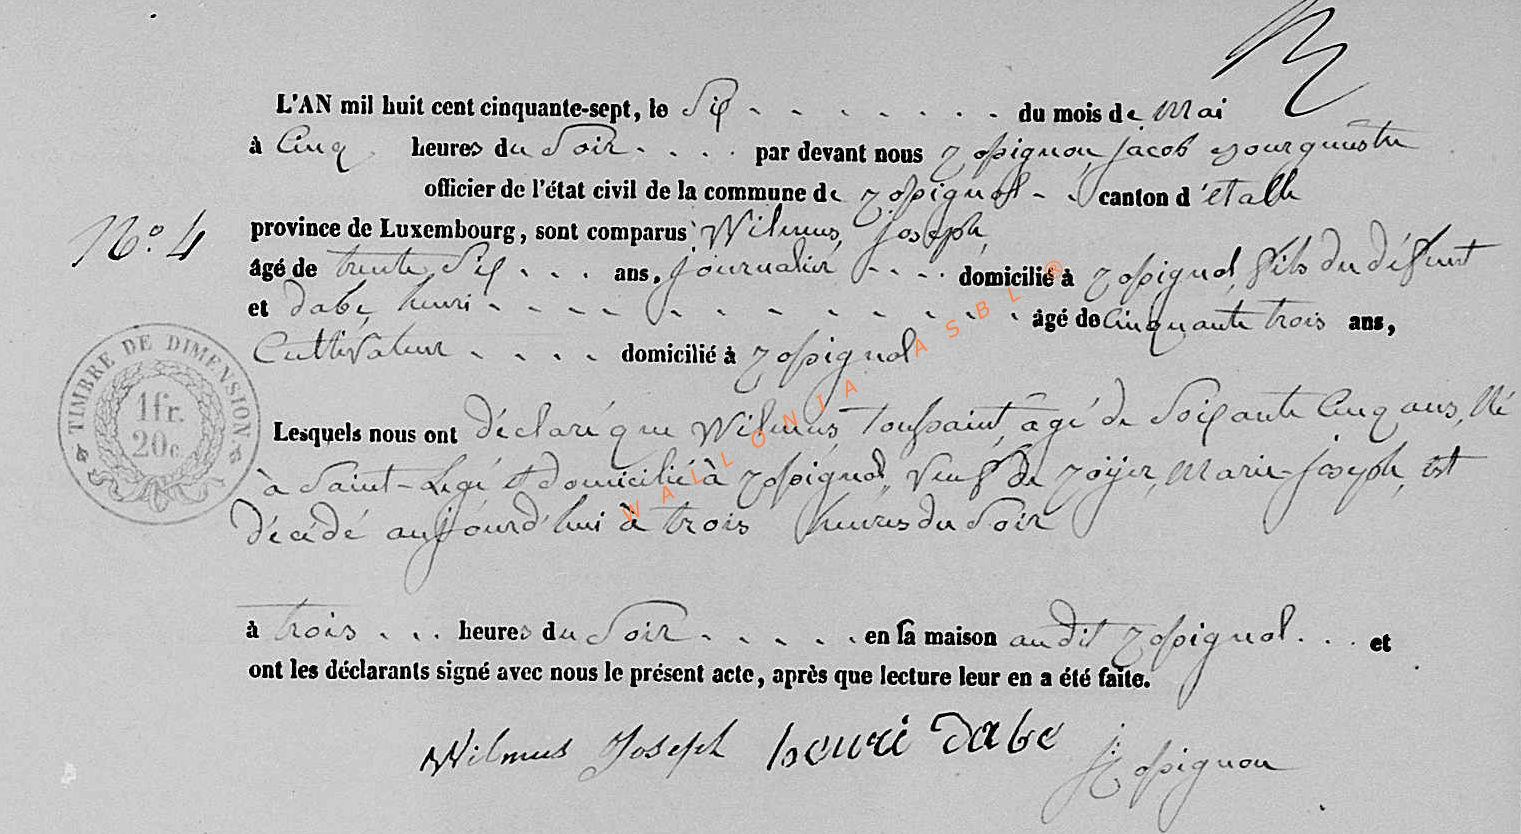 L'AN mil huit cent cinquante-sept, le Six du mois de Mai
à Cinq heures du Soir par devant nous Rossignon, Jacob Bourgmestre
officier de l'état civil de la commune de Rossignol canton d'étalle
N.° 4
province de Luxembourg, sont comparus Wilmus, Joseph,
âgé de trente Six ans, journalier domicilié à Rossignol, fils du défunt
et dabe, henri âgé de Cinquante trois ans,
Cultivateur domicilié à Rossignol
TIMBRE DE DIMENSION
1 fr.
20 c.
Lesquels nous ont déclaré que Wilmus Toussaint, âgé de Soixante Cinq ans, Né
à Saint-Legé et domicilié à Rossignol, Veuf de Roÿer, Marie-Joseph, est
décédé aujourd'hui à trois heures du Soir
à trois heures du Soir en sa maison audit Rossignol et
ont les déclarants signé avec nous le présent acte, après que lecture leur en a été faite.
Wilmus Joseph henri dabe J Rossignon
WALLONIA ASBL ®